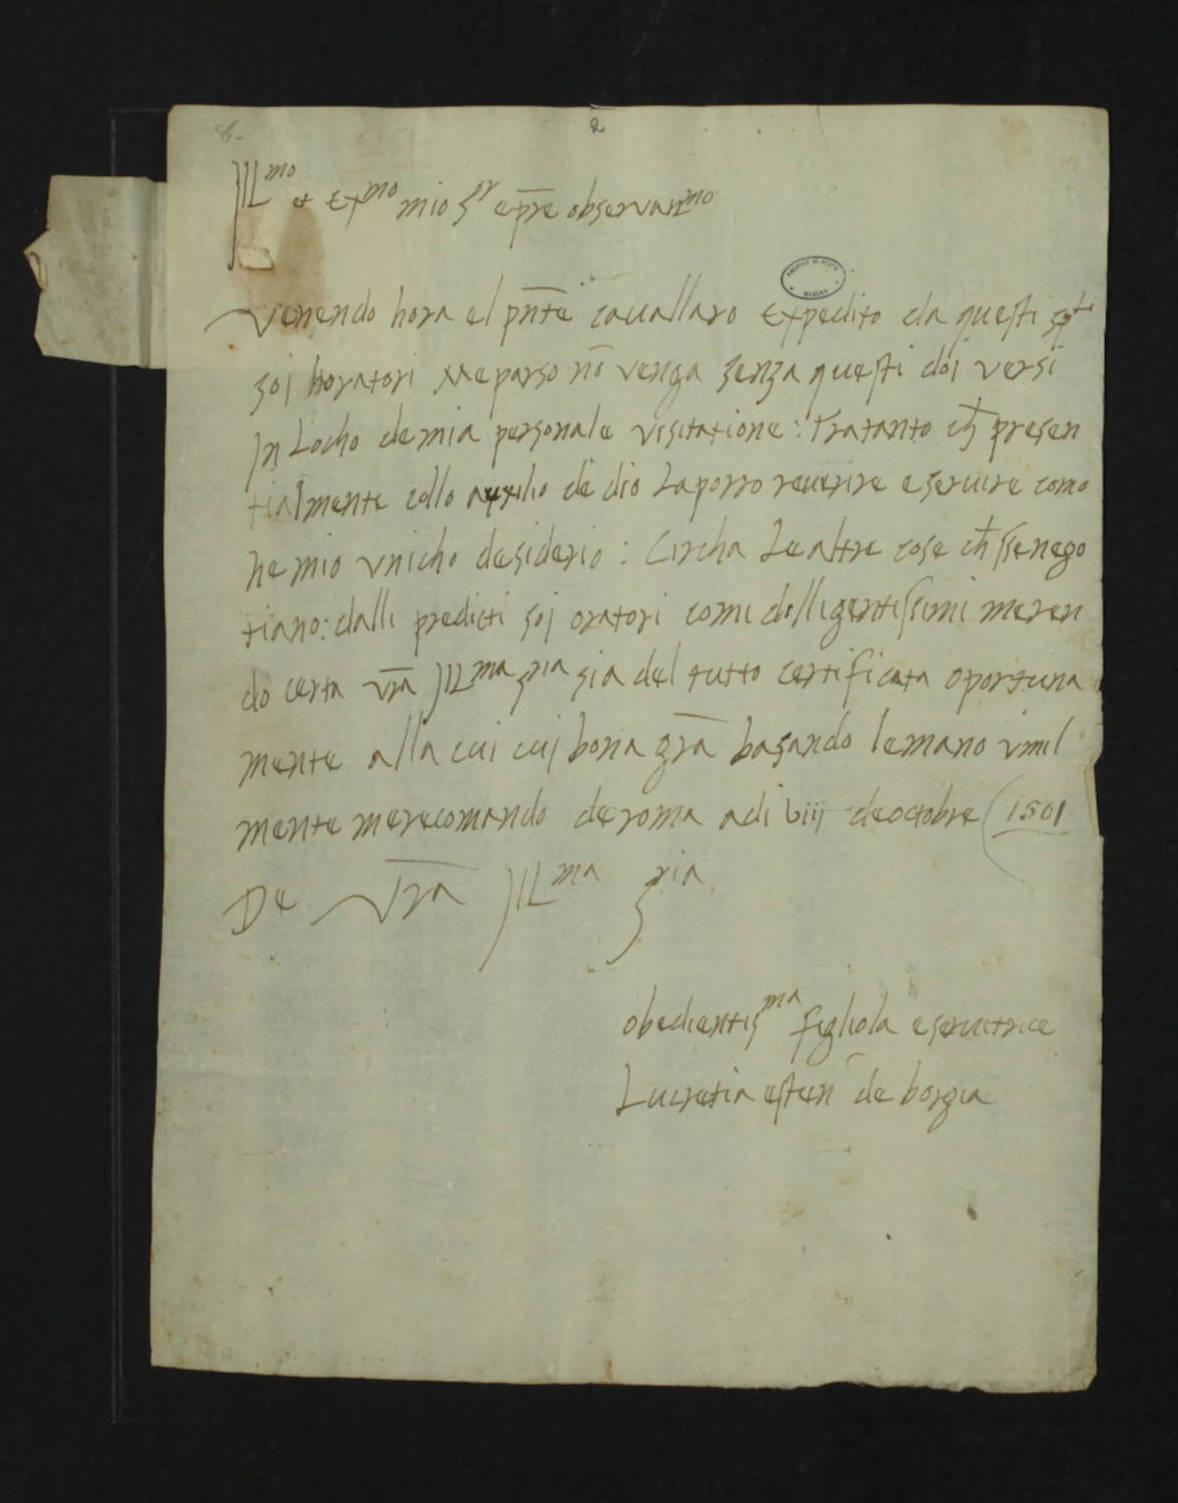 2
Illmo et Exmo mio Sor e pre observanmo
ARCHIVIO DI STATO
MODENA
Venendo hora el pnte cavallaro Expedito da questi spti
soi horatori Me parso nō venga senza questi doi versi
In Locho de mia personale visitatione: Tratanto ch presen
tialmente collo auxilio de dio La porro reverire e servire como
he mio unicho desiderio: Circha Le altre cose ch sse nego
tiano: dalli predicti soi oratori comi dilligentissimi meren
do certa Vra Illma Sria sia del tutto certificata oportuna
mente alla cui cui bona gra basando le mano umil
mente me recomando de roma adi viij de octobre 1501
De Vra Illma Sria
obedientisma figliola e servitrice
Lucretia esten de borgia